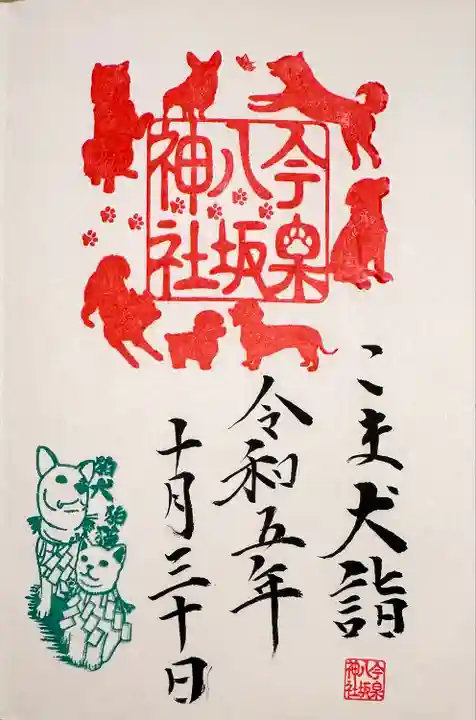 今泉
八坂
神社
こま犬詣
令和五年
十月三十日
狛犬 狛猫
今泉
八坂
神社